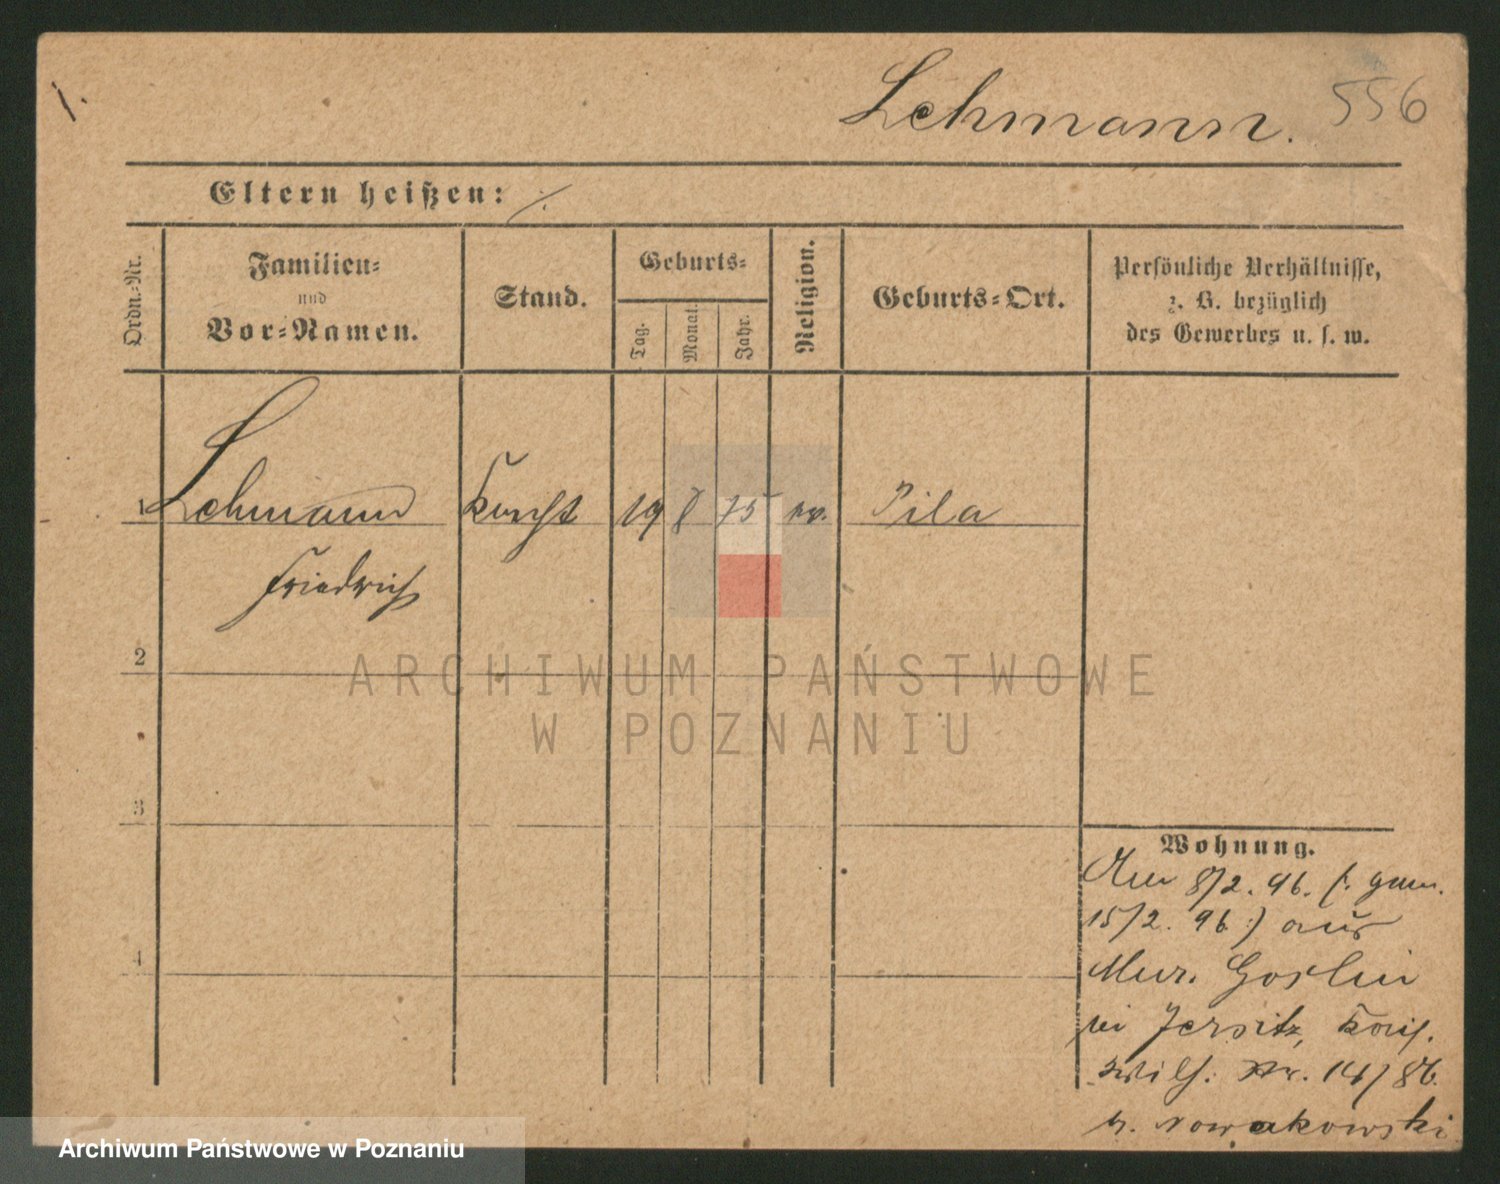 Lehmann. 556
Eltern heißen: ./.
Ordn.-Nr.
Familien-
und
Vor-Namen.
Stand.
Geburts-
Tag.
Monat.
Jahr.
Religion.
Geburts-Ort.
Persönliche Verhältnisse,
z. B. bezüglich
des Gewerbes u. s. w.
1 Lehmann Knecht 19 8 75 ev. Pila
Friedrich
2
ARCHIWUM PAŃSTWOWE
W POZNANIU
3
Wohnung.
8/2. 96. (: gem.
15/2. 96 :) aus
4
Mur. Goslin
in Jersitz,
Wilh. Nr. 14/86
b. Nowakowski
Archiwum Państwowe w Poznaniu